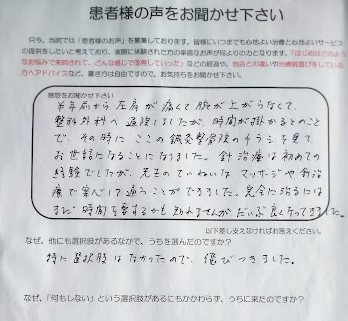 患者様の声をお聞かせ下さい
只今、当院では「患者様のお声」を募集しております。皆様にいつまでも心地よい治療と心地よいサービス
の提供をしたいと考えており、実際に体験された方の率直なお声が何よりの力となります。「はじめはどのよう
なお悩みで来院されて、どんな感じで改善していった」などの経過や、他店との違いや治療院選びをしている
方へアドバイスなど、書き方は自由ですので、お気持ちをお聞かせ下さい。
感想をお聞かせ下さい
半年前から左肩が痛くて腕が上がらなくて、
整形外科へ通院しましたが、時間が掛かるとのこと
で、その時にここの鍼灸整骨院のチラシを見て
お世話になることになりました。針治療は初めての
経験でしたが、先生のていねいなマッサージや針治
療で安心して通うことができました。完全に治るには
まだ時間を要するかも知れませんがだいぶ良くなってきました。
以下差し支えなければお答えください。
なぜ、他にも選択肢があるなかで、うちを選んだのですか?
特に選択肢はなかったので、飛びつきました。
なぜ、「何もしない」という選択肢があるにもかかわらず、うちに来たのですか?